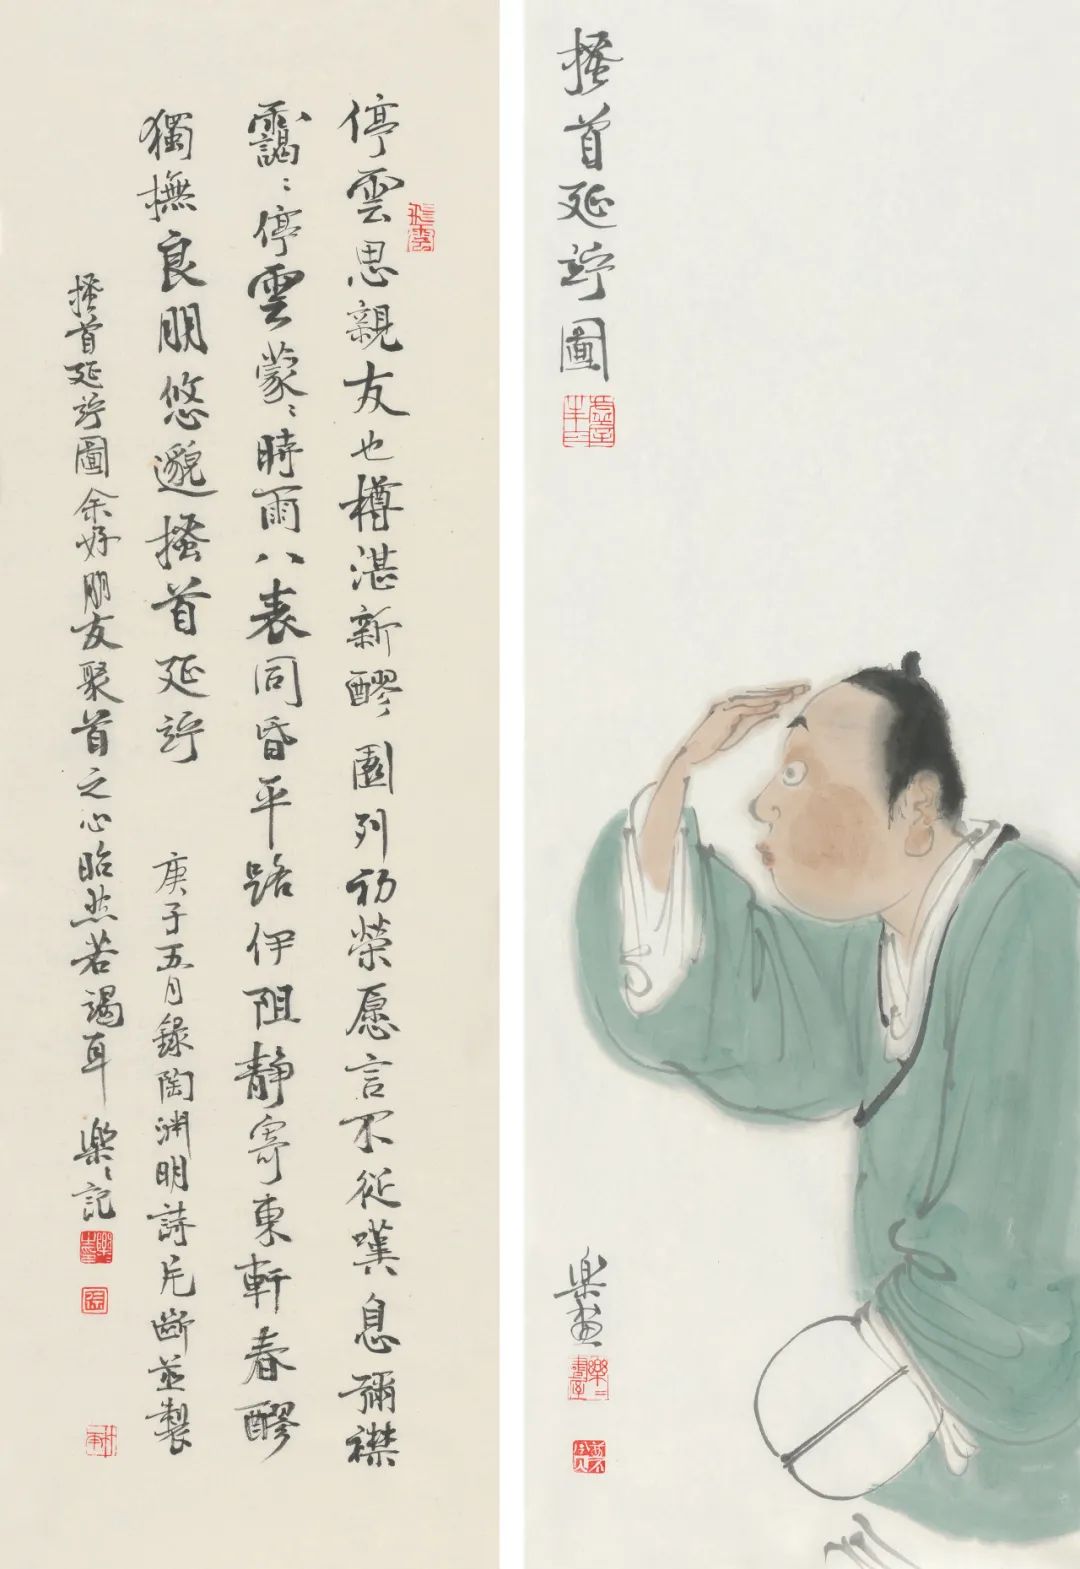 搔首延竚圖
樂畫
停雲思親友也樽湛新醪園列初榮愿言不從嘆息彌襟
靄〻停雲蒙〻時雨八表同昏平路伊阻靜寄東軒春醪
獨撫良朋悠邈搔首延竚 庚子五月錄陶渊明詩片斷並製
搔首延竚圖余好朋友聚首之心昭然若耳 樂〻記